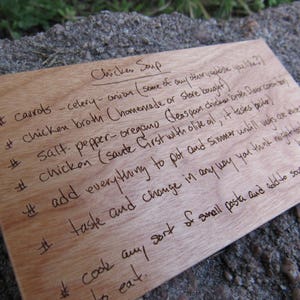 Chicken Soup
# carrots - celery - onion (some of any other vegetable you like?)
# chicken broth (homemade or store bought)
# salt - pepper - oregano (teaspoon chicken broth
# chicken (saute first with olive oil, it tastes better)
# add everything to pot and simmer until
# taste and change in any way you think
# cook any sort of small pasta and add to
to eat.